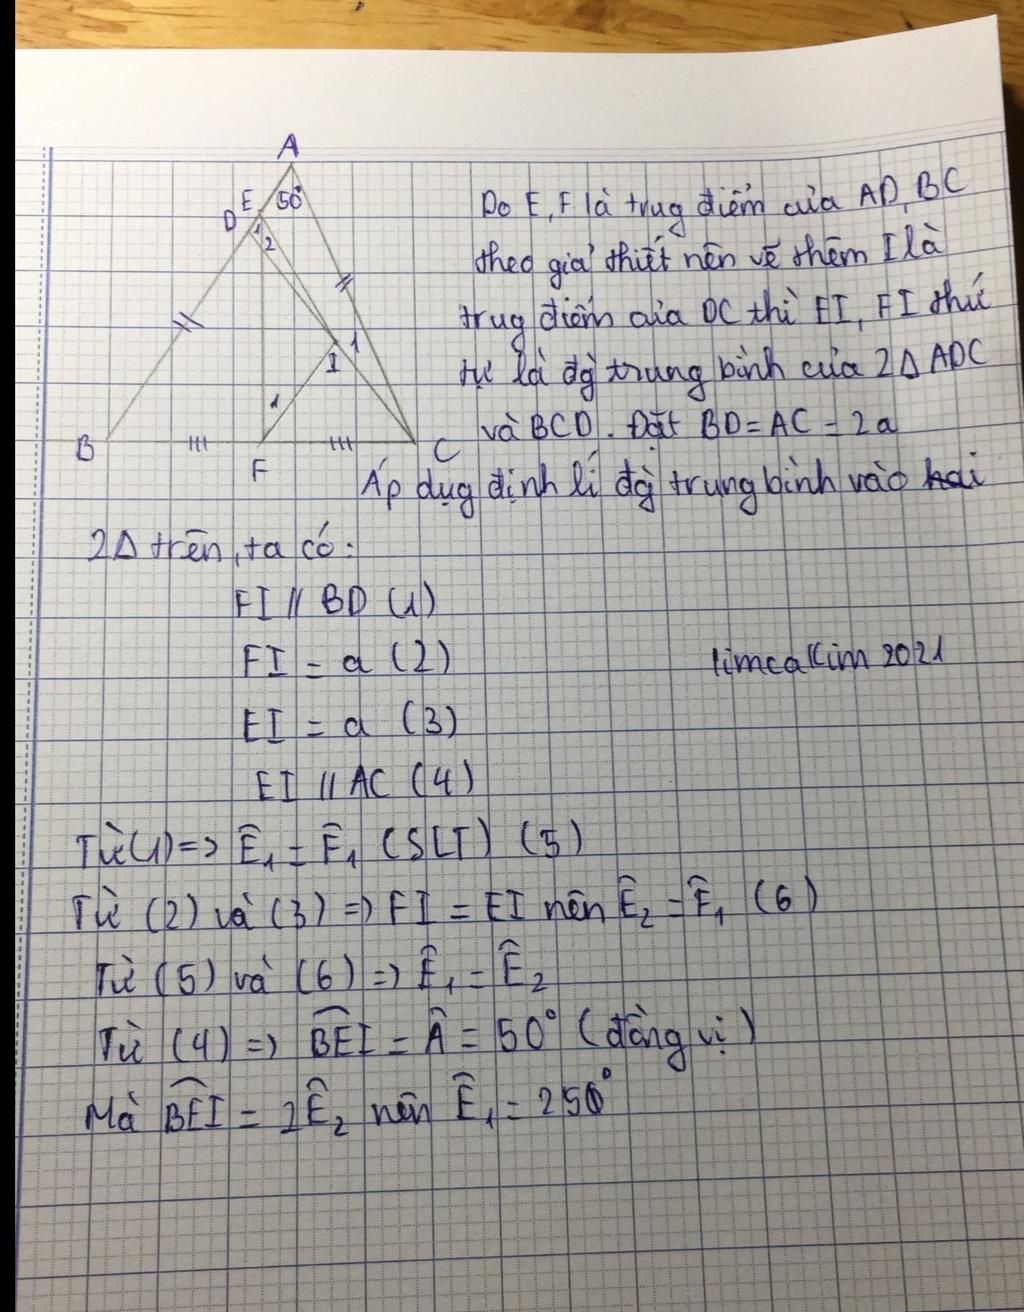 A
E 50°
D 1 2
I 1
1
B F C
Do E, F là trug điểm của AD, BC
theo giả thiết nên vẽ thêm I là
trug điểm của DC thì EI, FI thứ
tự là đg trung bình của 2Δ ADC
và BCD. Đặt BD = AC = 2a
Áp dụg định lí đg trung bình vào hai
2Δ trên, ta có:
FI // BD (1)
FI = a (2)
limcakim 2021
EI = a (3)
EI // AC (4)
Từ (1) => Ê₁ = F̂₁ (SLT) (5)
Từ (2) và (3) => FI = EI nên Ê₂ = F̂₁ (6)
Từ (5) và (6) => Ê₁ = Ê₂
Từ (4) => B̂EI = Â = 50° (đồng vị)
Mà B̂EI = 2Ê₂ nên Ê₁ = 250°